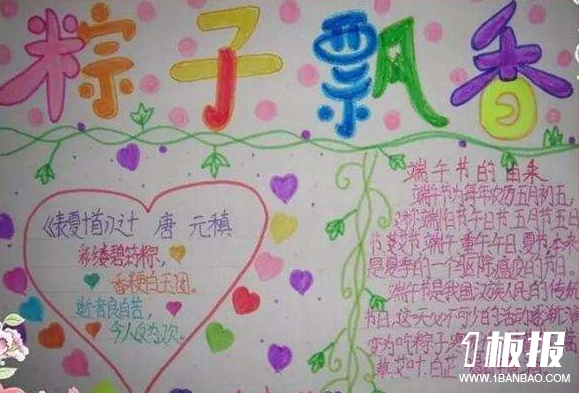 粽子飘香
《表夏十首》之十 唐 元稹
彩缕碧筠粽,
香粳白玉团。
逝者良自苦,
今人反为欢。
端午节的由来
端午节为每年农历五月初五,
又称端阳节午日节 五月节五日
节 艾节 端午 重午 午日 夏节 本来
是夏季的一个驱除瘟疫的节日。
端午节是我国汉族人民的传统
节日,这一天必不可少的活动逐渐演
变为吃粽子
草 艾叶 白芷
1板报
WWW.1BANBAO.COM